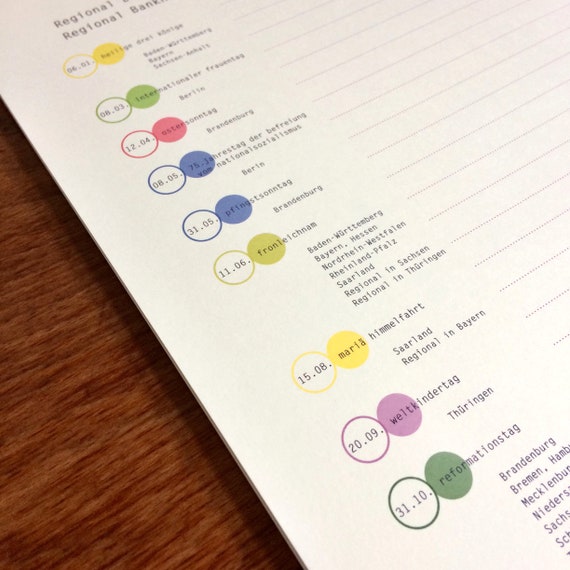 Regional
Regional
06.01. heilige drei könige
Baden-Württemberg
Bayern
Sachsen-Anhalt
08.03. internationaler frauentag
Berlin
12.04. ostersonntag
Brandenburg
08.05. 75.jahrestag der befreiung
vom nationalsozialismus
Berin
31.05. pfingstsonntag
Brandenburg
11.06. fronleichnam
Baden-Württemberg
Bayern, Hessen
Nordrhein-Westfalen
Rheinland-Pfalz
Saarland
Regional in Sachsen
Regional in Thüringen
15.08. mariä himmelfahrt
Saarland
Regional in Bayern
20.09. weltkindertag
Thüringen
31.10. reformationstag
Brandenburg
Bremen, Hambu
Mecklenburg
Niedersa
Sachs